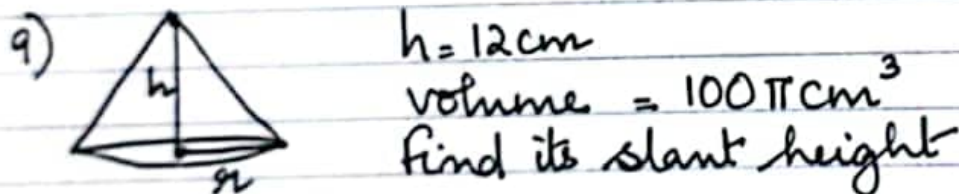 9)
h = 12cm
h
volume = 100πcm³
find its slant height
r